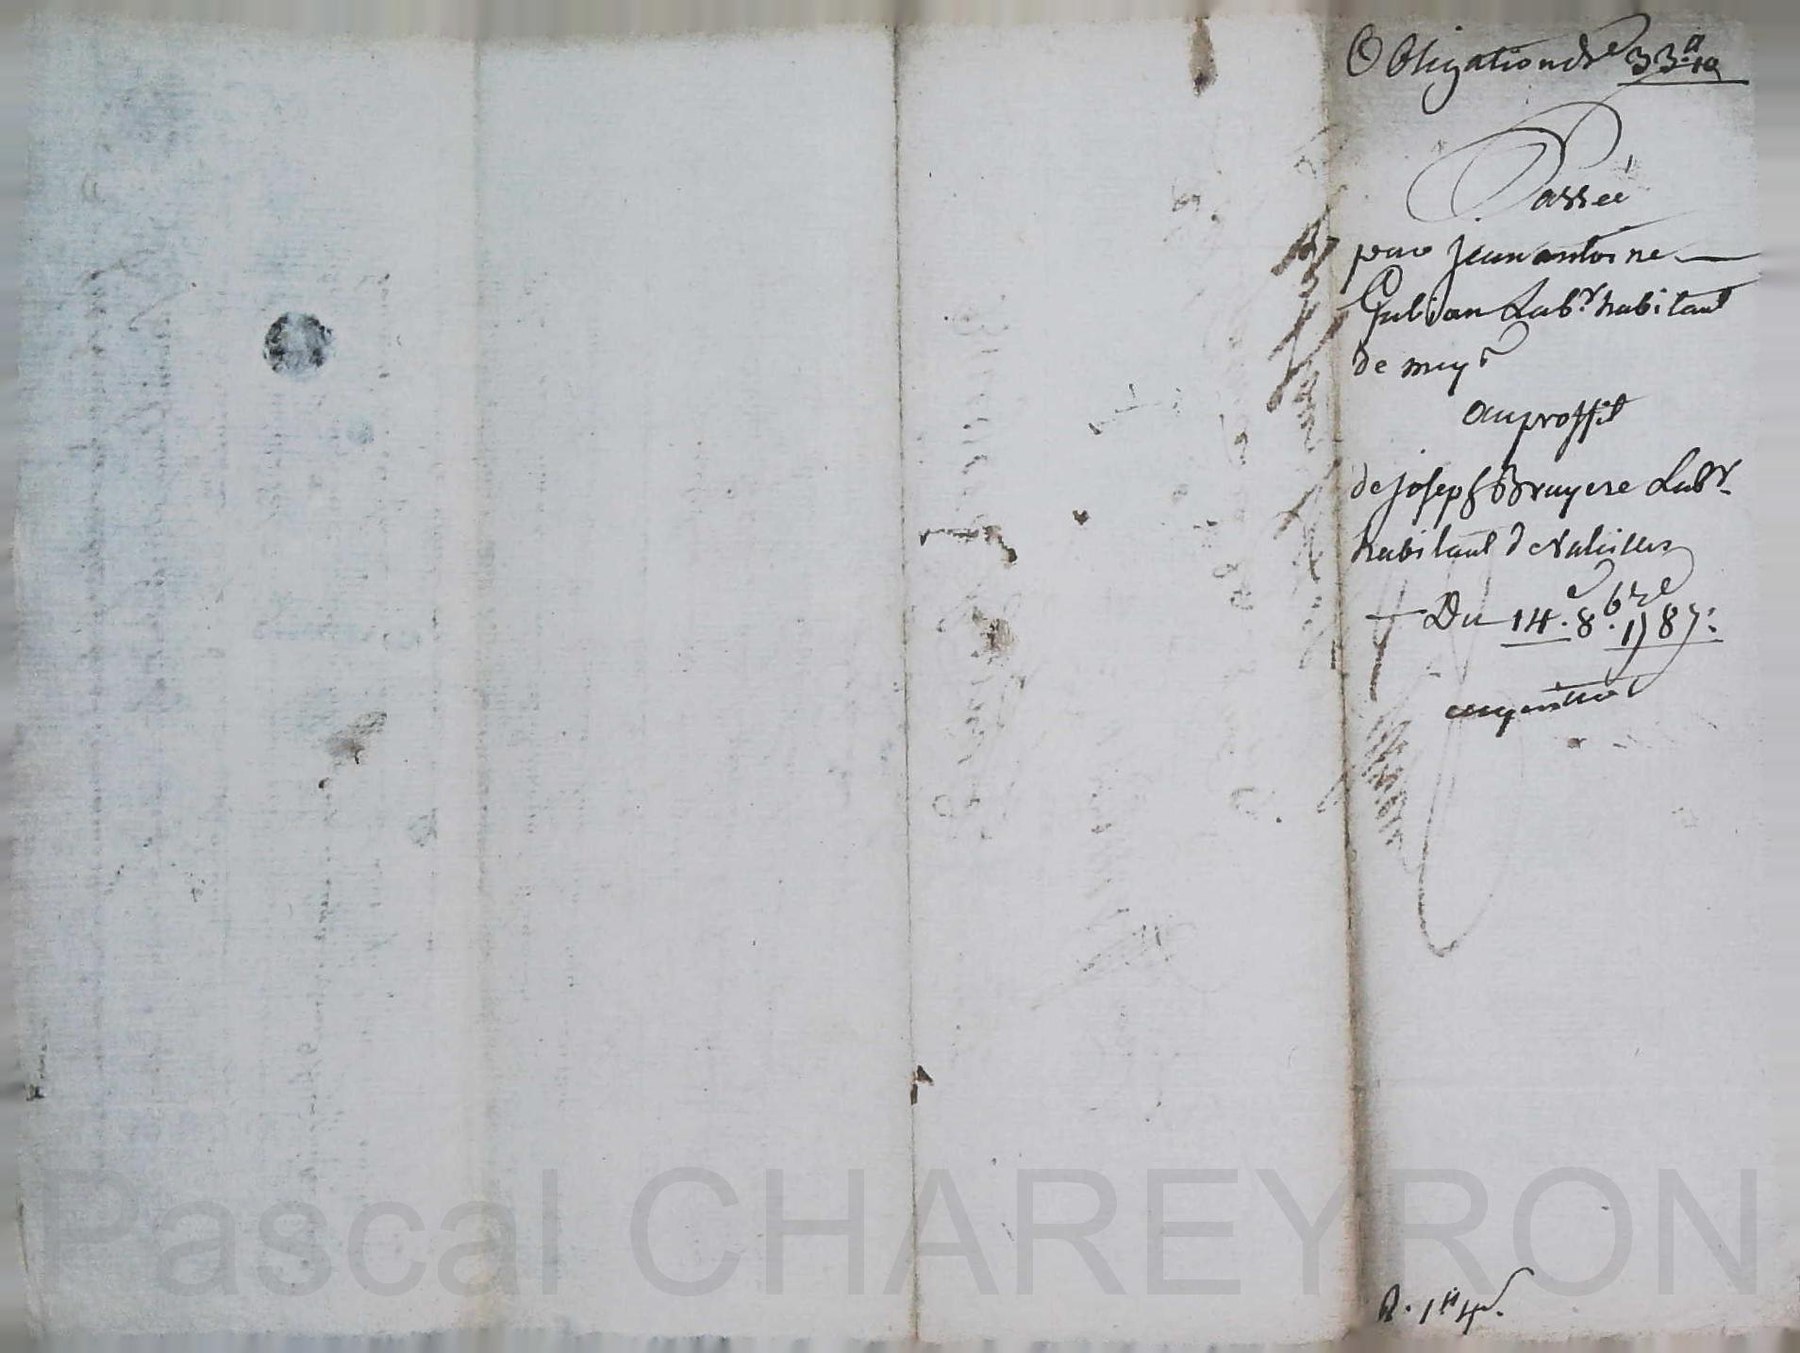 Obligation de 33#10
Passée
par jean antoine
Gubian Labr. habitant
de mey
au proffit
de joseph Bruyere Labr.
habitant de
Du 14.e 8.bre 1787.
R. 1# 4s.
Pascal CHAREYRON